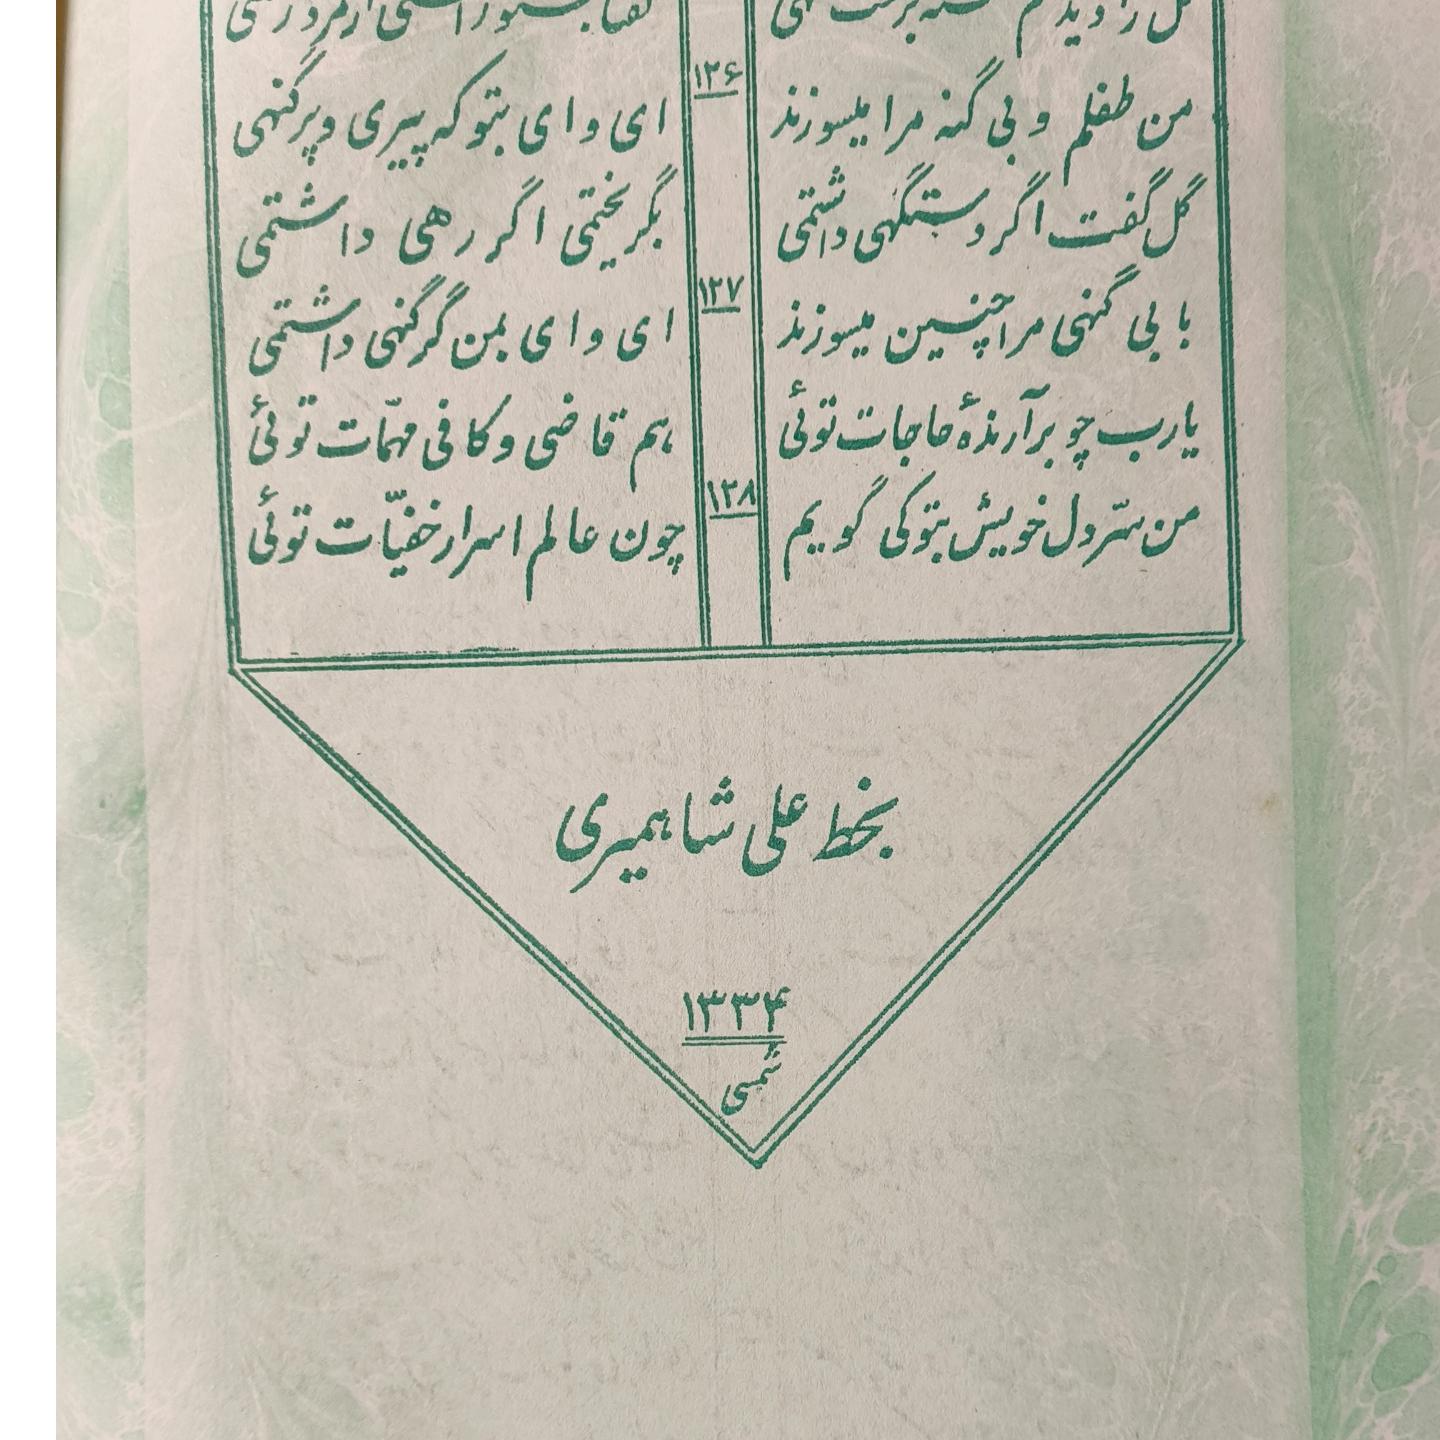 گل را دیدم
۱۲۶
من طفلم و بی گنه مرا میسوزند ای وای بتو که پیری و پرگنهی
گل گفت اگر دستگهی داشتمی بگریختمی اگر رهی داشتمی
۱۲۷
با بی گنهی مرا چنین میسوزند ای وای بمن گر گنهی داشتمی
یارب چو برآرندهٔ حاجات توئی هم قاضی و کافی مهمّات توئی
۱۲۸
من سرّ دل خویش بتو کی گویم چون عالم اسرار خفیّات توئی
بخط علی شاهمیری
۱۳۳۴
شمسی